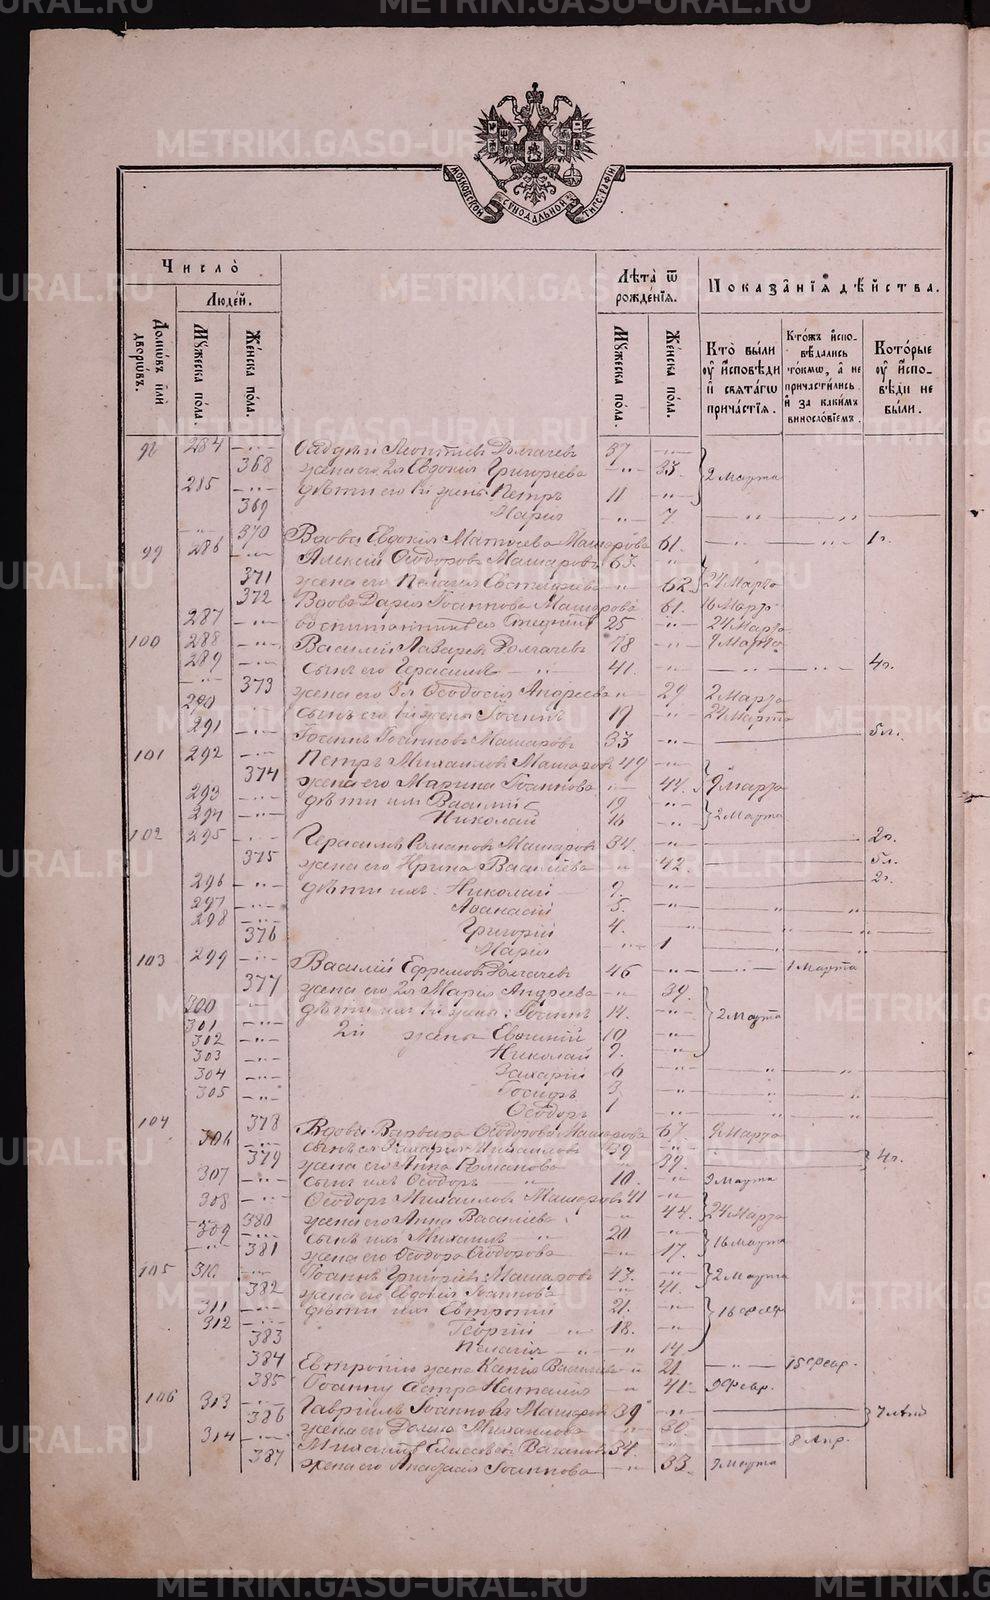 METRIKI.GASO-URAL.RU
МОСКОВСКОЙ СѴНОДАЛЬНОЙ ТИПОГРАФІИ
Число̀
Людей.
Домѡвъ или дворѡвъ.
Мꙋжеска пола.
Женска пола.
Лѣта ѿ рожденїѧ.
Мꙋжеска пола.
Женска пола.
Показанїѧ дѣйства.
Кто были оу исповѣди и свѧтагѡ причастїѧ.
Ктожъ исповѣдались токмѡ, а не причастились и за какимъ винословїемъ.
Которые оу исповѣди не были.
284 Леонтіевъ Долгачевъ 37
368 жена его 2я Евдокія Григорьева 2 Марта
285 дѣти его 1й жены Петръ 11
369 Марія 7
370 Вдова Евдокія Машарова 61. 1г.
99 286 Алексій Ѳеодоровъ Машаровъ 63.
371 жена его Пелагія 62 24 Марта
372 Вдова Дарія Іоаннова Машарова 61. 16 Март
287 25 24 Марта
100 288 Василій Лазаревъ Долгачевъ 78 9 Марта
289 сынъ его Герасимъ 41. 4г.
373 жена его Ѳеодосія Андреева 29 2 Марта
290 сынъ его 1й жены Іоаннъ 19 24 Марта
291 Іоаннъ Іоанновъ Машаровъ 33 5л.
101 292 Петръ Михаиловъ Машаровъ 49
374 жена его Марина Іоаннова 44. 9 Марта
293 дѣти ихъ Василій 19
294 Николай 16 2 Марта
102 295 Герасимъ Романовъ Машаровъ 34. 2г.
375 жена его Ирина Василіева 42. 5л.
296 дѣти ихъ: Николай 9. 2г.
297 Аѳанасій 5.
298 Григорій 4.
376 Марія 1
103 299 Василій Ефремовъ Долгачевъ 46 1 Марта
377 жена его 2я Марія Андреева 39.
300 дѣти ихъ 1й жены: Іоаннъ 14. 2 Марта
301 2й жены Евгеній 10
302
303 Николай 9.
304 Захарій 6
305 Іосифъ 3
Ѳеодоръ 1
104 378 Вдова Варвара Ѳеодорова Машарова 67. 9 Марта
306 сынъ ея Захарія Михаиловъ 39 4г.
379 жена его Анна Романова 39.
307 сынъ ихъ Ѳеодоръ 10. 9 Марта
308 Ѳеодоръ Михаиловъ Машаровъ 41
380 жена его Анна Василіева 44. 24 Марта
309 сынъ ихъ Михаилъ 20
381 жена его Ѳеодора Ѳеодорова 17. 16 Марта
105 310 Іоаннъ Григорьевъ Машаровъ 43. 2 Марта
382 жена его Евдокія Іоаннова 41.
311 дѣти ихъ Евтропій 21. 16 Февр
312 Георгій 18.
383 Пелагія 14
384 Евтропію жена Ксенія Василіева 21. 15 Февр.
385 Іоанну сестра Наталія 41. 9 Февр.
106 313 Гавріилъ Іоанновъ Машаровъ 39
386 жена его Михаилова 30.
314 34. 8 Апр.
387 жена его Анастасія Іоаннова 33. 9 Марта